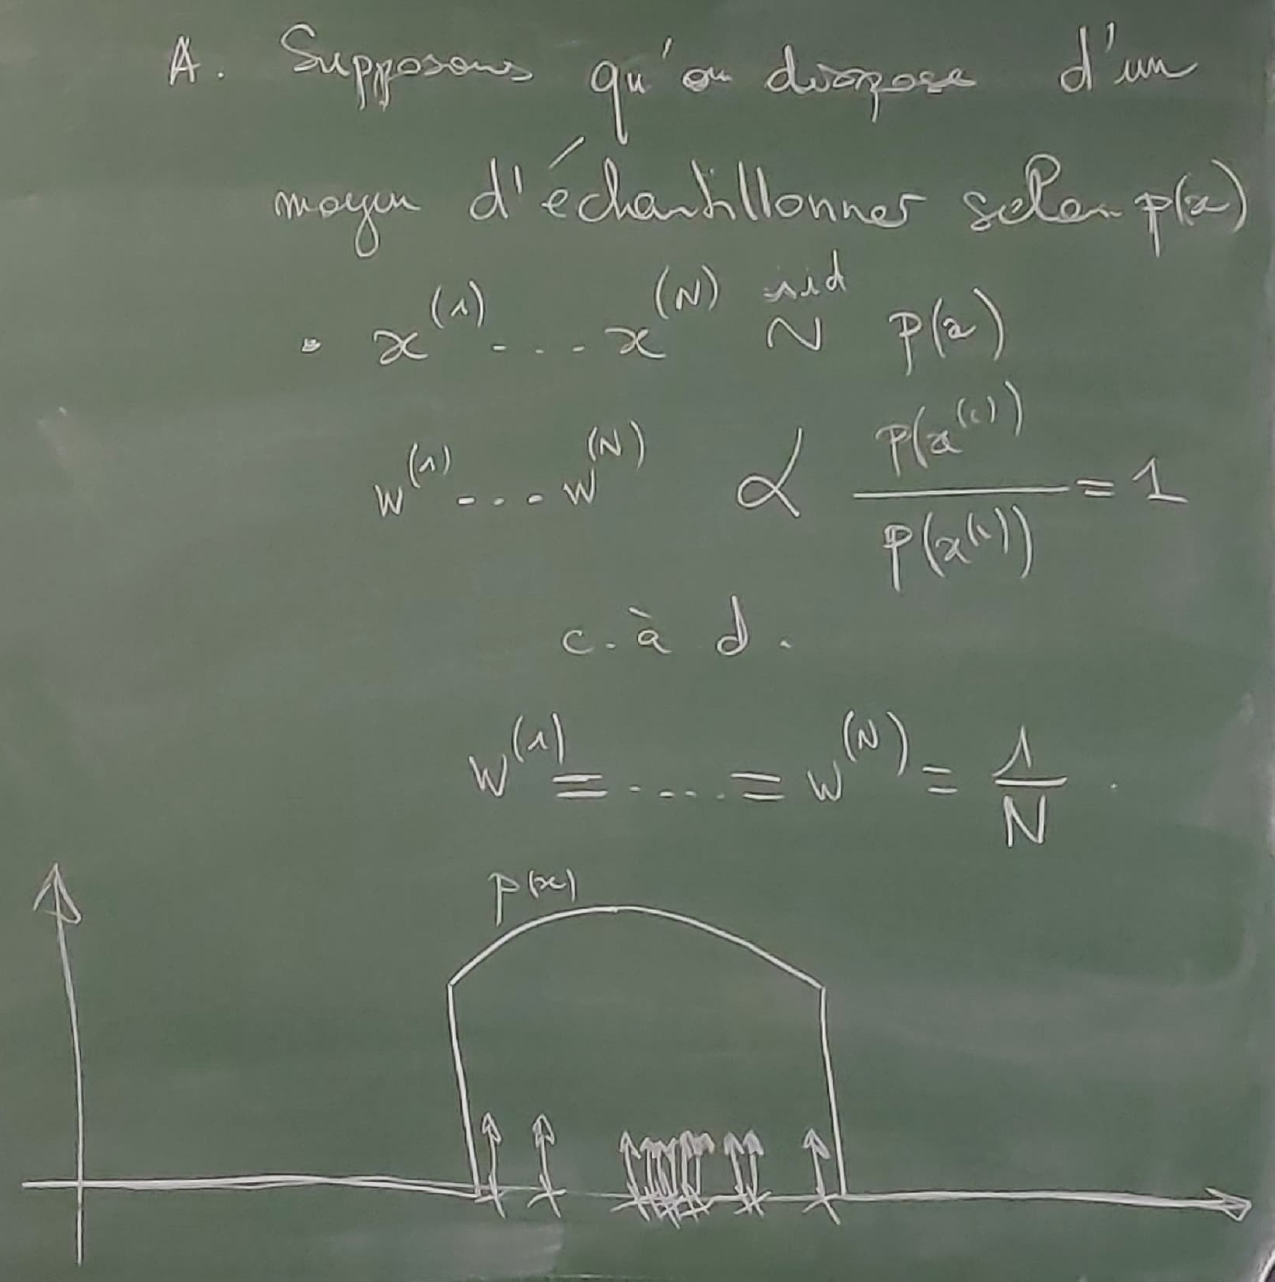 A. Supposons qu'on dispose d'un
moyen d'échantillonner selon p(x)
• x^(1) ... x^(N) iid ~ p(x)
w^(1) ... w^(N) ∝ p(x^(i)) / p(x^(i)) = 1
c. à d.
w^(1) = .... = w^(N) = 1/N .
p(x)